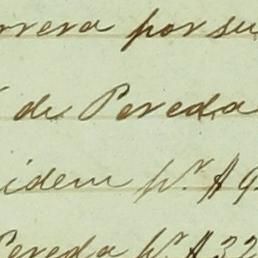 rrera por su
de Pereda
idem pr. A 9
Pereda pr. A 32